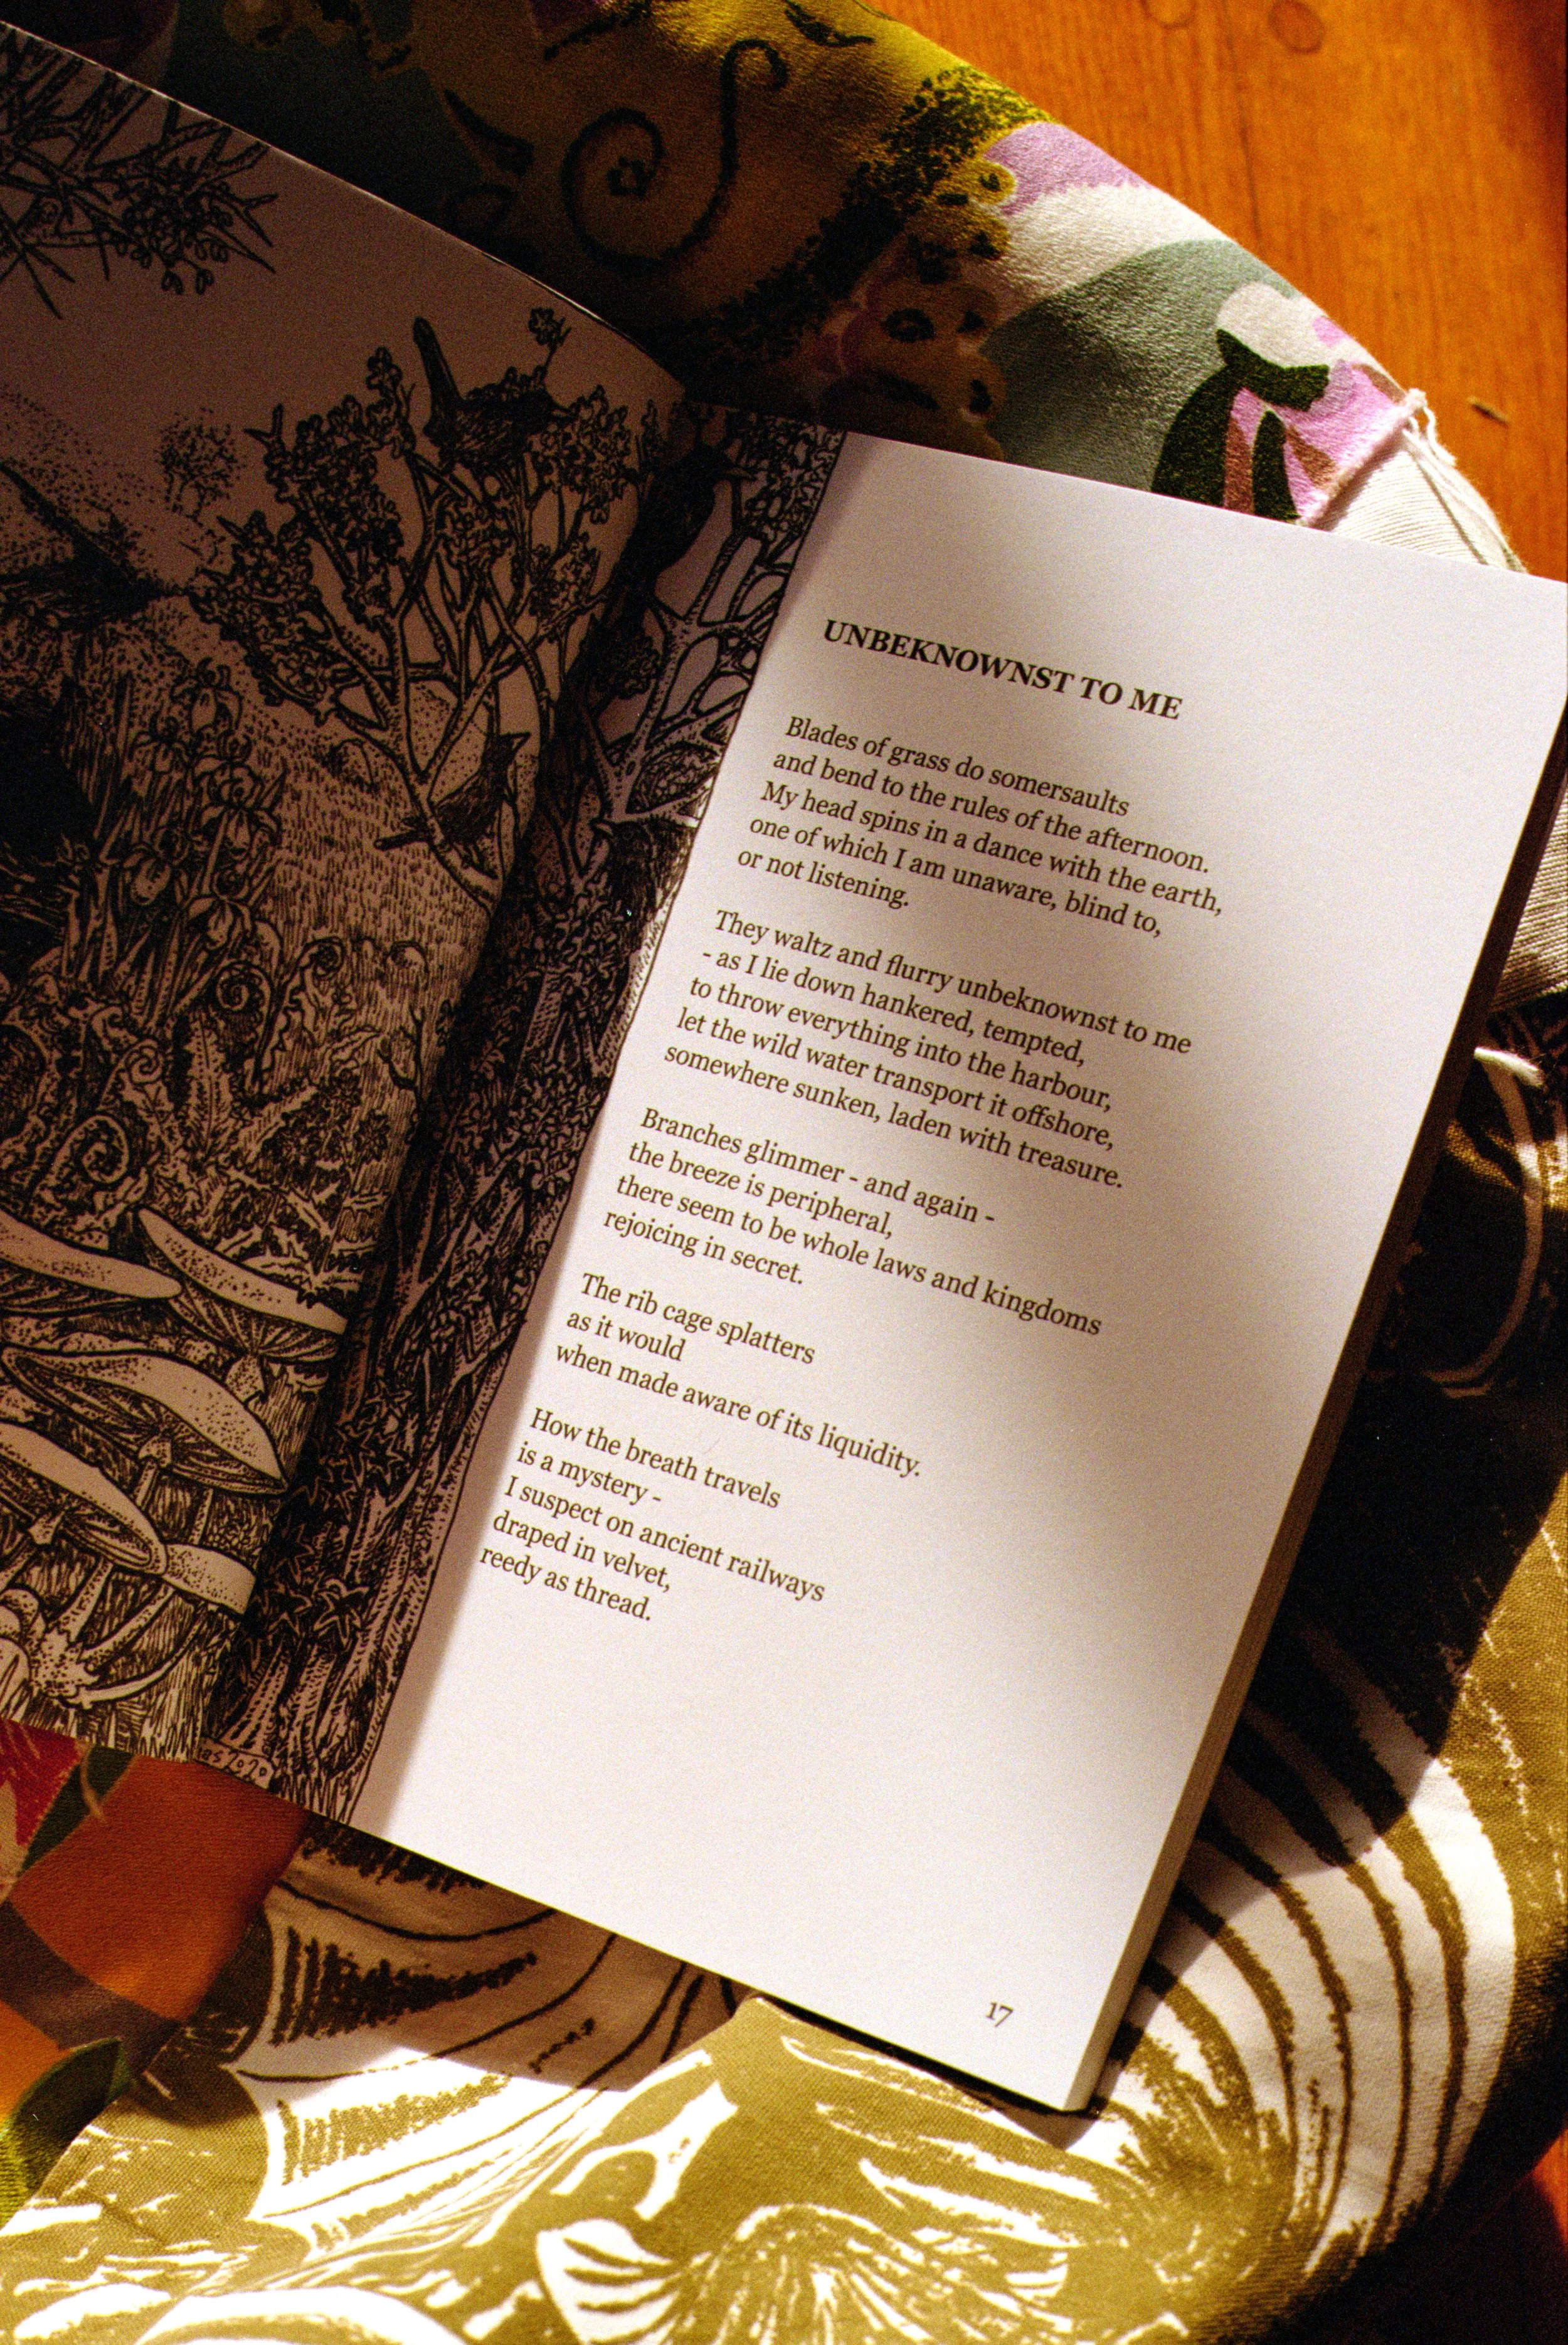 UNBEKNOWNST TO ME
Blades of grass do somersaults
and bend to the rules of the afternoon.
My head spins in a dance with the earth,
one of which I am unaware, blind to,
or not listening.
They waltz and flurry unbeknownst to me
- as I lie down hankered, tempted,
to throw everything into the harbour,
let the wild water transport it offshore,
somewhere sunken, laden with treasure.
Branches glimmer - and again -
the breeze is peripheral,
there seem to be whole laws and kingdoms
rejoicing in secret.
The rib cage splatters
as it would
when made aware of its liquidity.
How the breath travels
is a mystery -
I suspect on ancient railways
draped in velvet,
reedy as thread.
17
2020